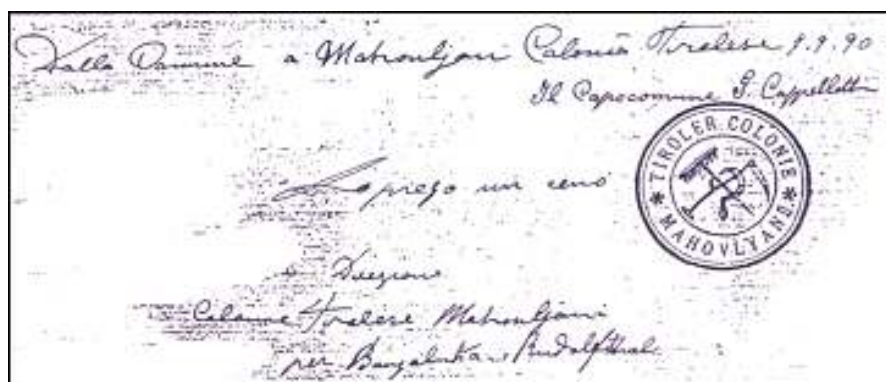 Dalla Comune a Mahouljani Colonia Tirolese 9.9.90
Il Capocomune G. Cappelletti
TIROLER COLONIE
* MAHOVLYANE *
La prego un cenó
Direzione
Colonia Tirolese Mahouljani
per Banjaluka Rudolfthal